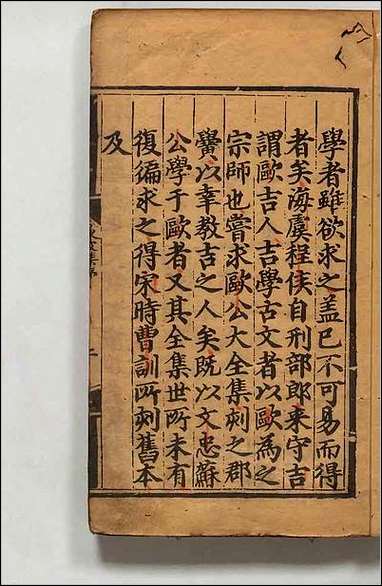 學者雖欲求之蓋已不可易而得
者矣海虞程侯自刑部郎来守吉
謂歐吉人吉學古文者以歐為之
宗師也嘗求歐公大全集刻之郡
黌以幸教吉之人矣既以文忠蘇
公學于歐者又其全集世所未有
復徧求之得宋時曹訓所刻舊本
及